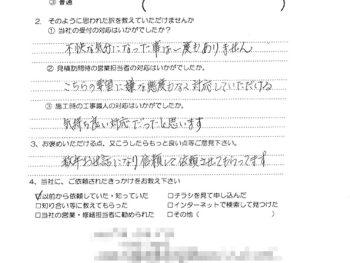 ③ 普通
2. そのように思われた訳を教えていただけませんか
① 当社の受付の対応はいかがでしたか。
不快な気分になった事は一度もありません
② 見積訪問時の営業担当者の対応はいかがでしたか。
こちらの希望に嫌な態度もなく対応していただける
③ 施工時の工事職人の対応はいかがでしたか。
気持ち良い対応だったと思います
3、お褒めいただける点、又こうしたらもっと良い点等ご意見下さい。
数年お世話になり信頼して依頼させてもらってます
4、当社に、ご依頼されたきっかけをお教え下さい
☑以前から依頼していた・知っていた □チラシを見て申し込んだ
□知り合い等に教えてもらった □インターネットで検索して見つけた
□当社の営業・修繕担当者に勧められた □その他（ ）